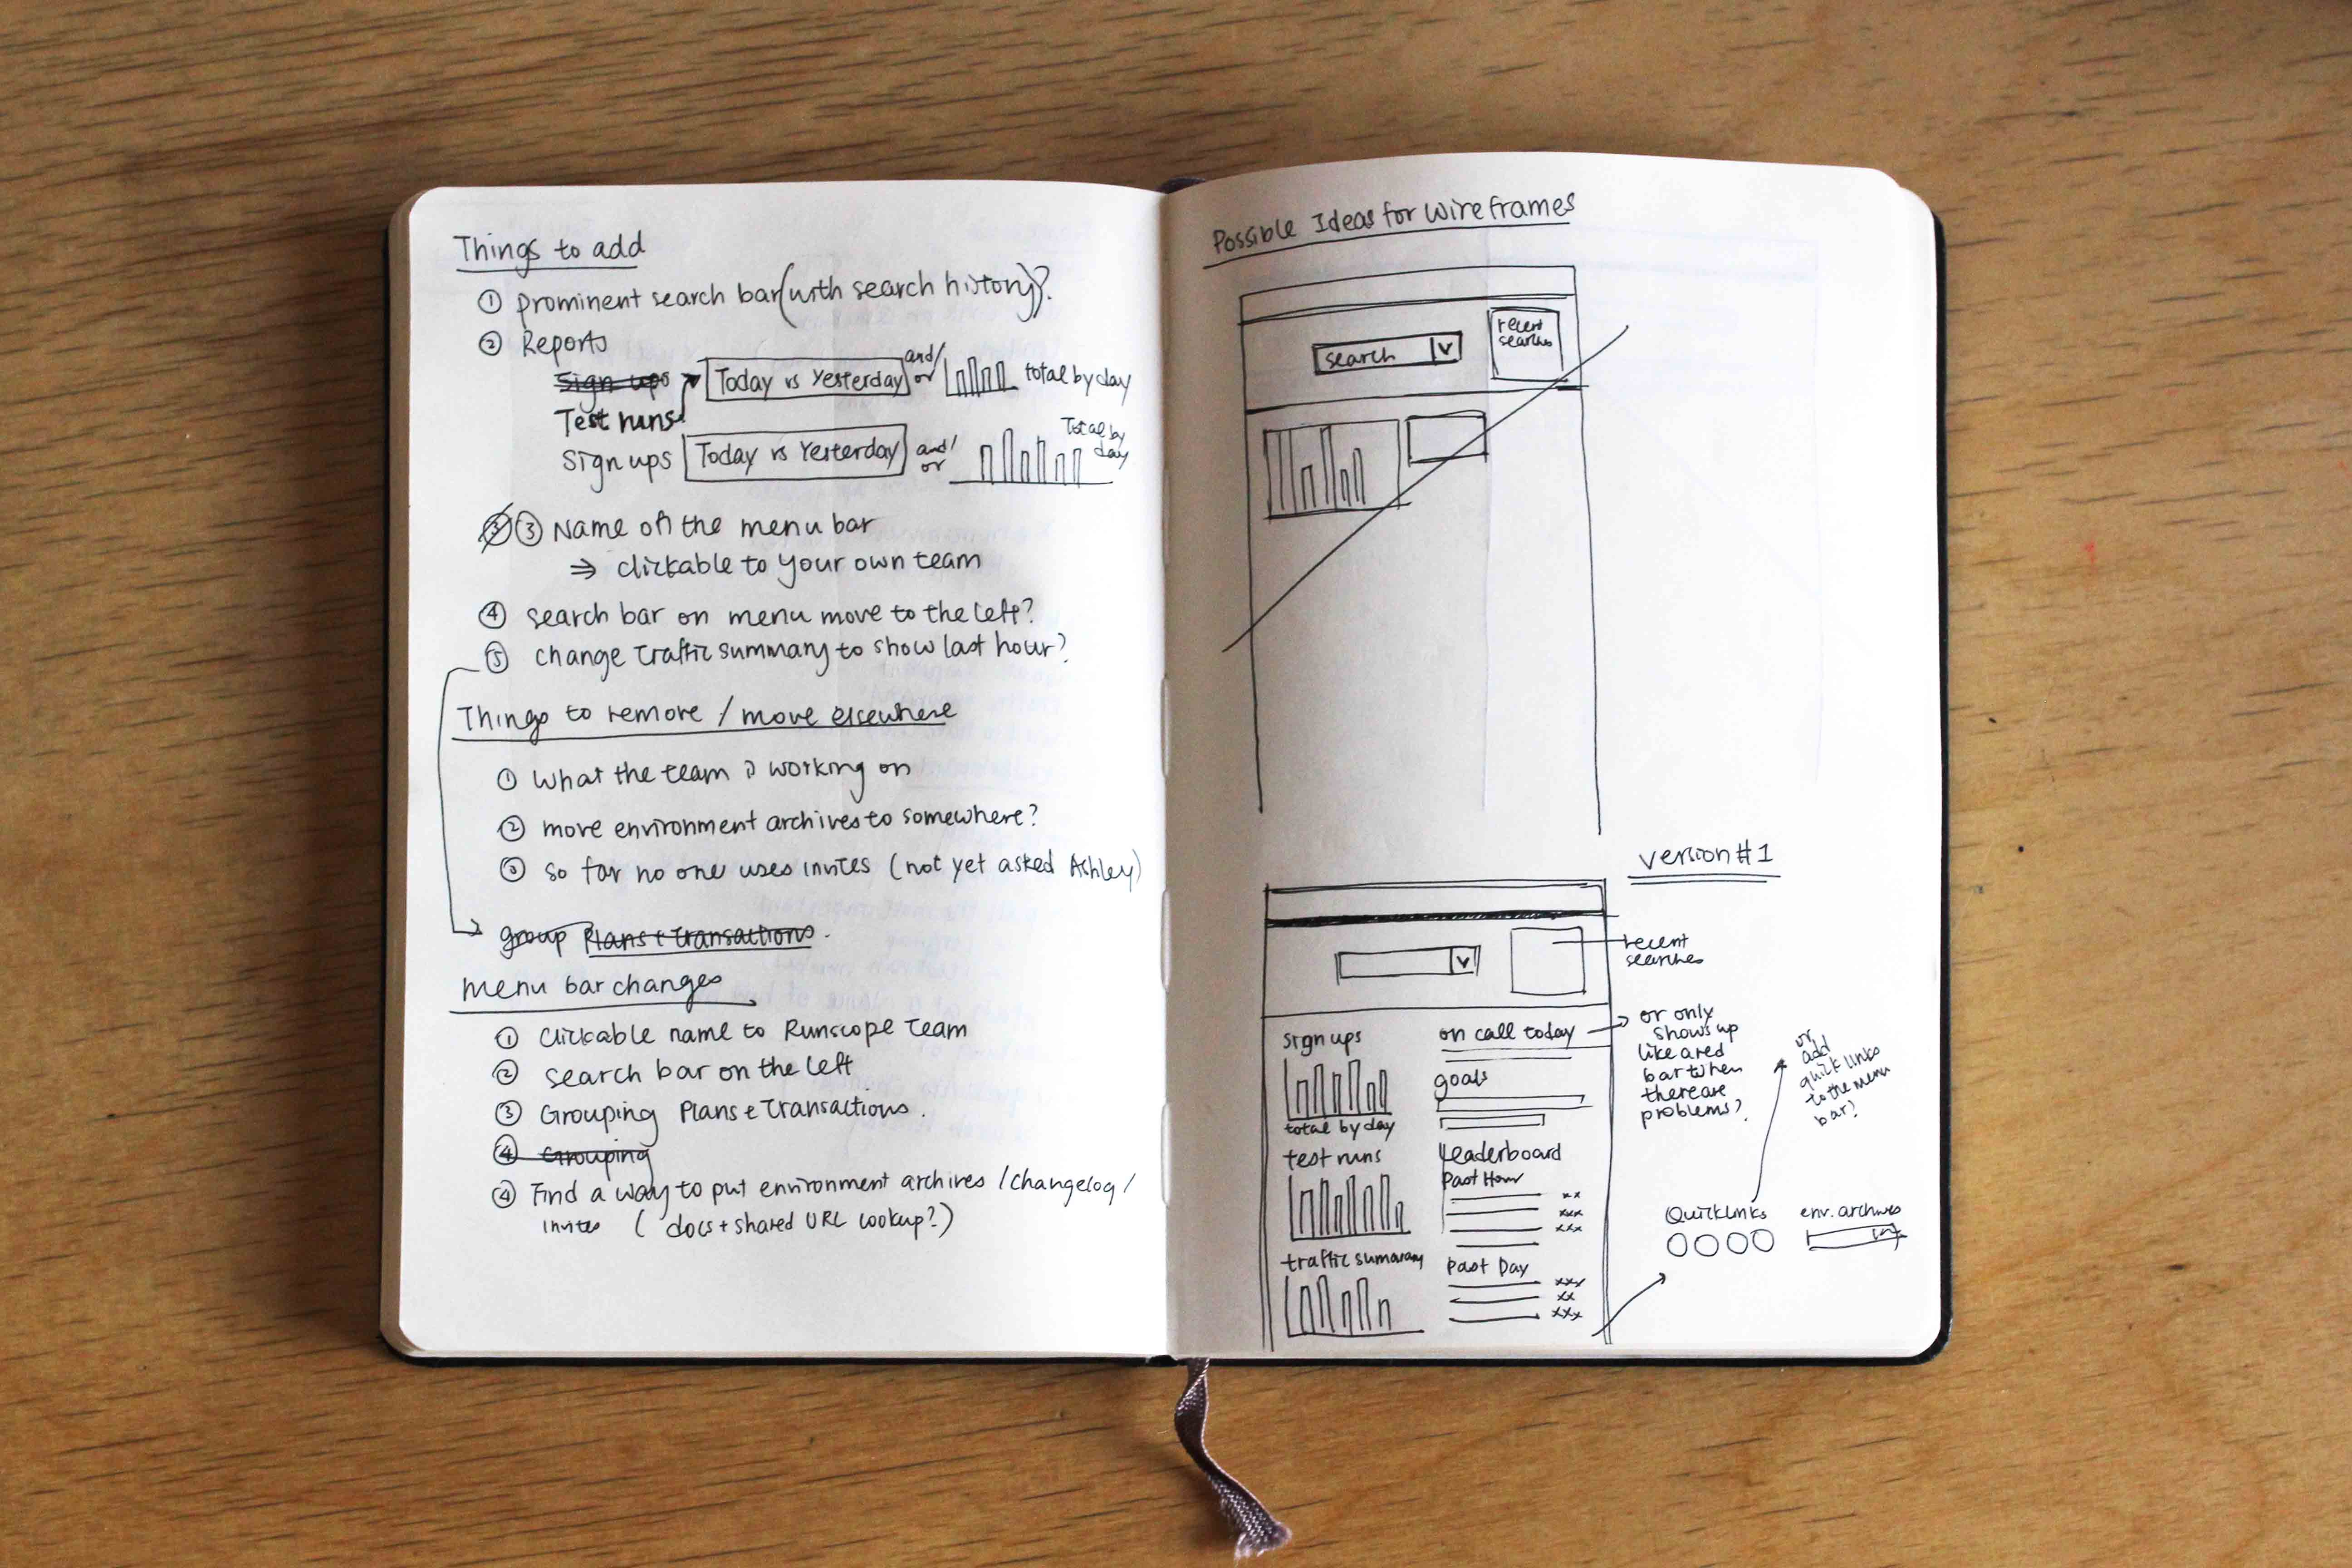 Things to add
① Prominent search bar (with search history)?
② Reports
Sign ups
Today vs Yesterday and/or total by day
Test runs
Sign ups Today vs Yesterday and/or Total by day
③ ③ Name on the menu bar
⇒ clickable to your own team
④ search bar on menu move to the left?
⑤ change traffic summary to show last hour?
Things to remove / move elsewhere
① What the team is working on
② move environment archives to somewhere?
③ so far no one uses invites (not yet asked Ashley)
group Plans + Transactions.
Menu bar changes
① Clickable name to Runscope Team
② search bar on the left
③ Grouping Plans + Transactions.
④ Grouping
④ Find a way to put environment archives / changelog /
invites ( docs + shared URL lookup?)
Possible Ideas for Wireframes
search V
recent
searches
version #1
V
recent
searches
sign ups
total by day
test runs
traffic summary
on call today
goals
leaderboard
Past Hour
xx
xxx
xxx
Past Day
xxx
xx
xxx
or only
shows up
like a red
bar when
there are
problems?
or
add
quick links
to the menu
bar?
Quicklinks
env. archives